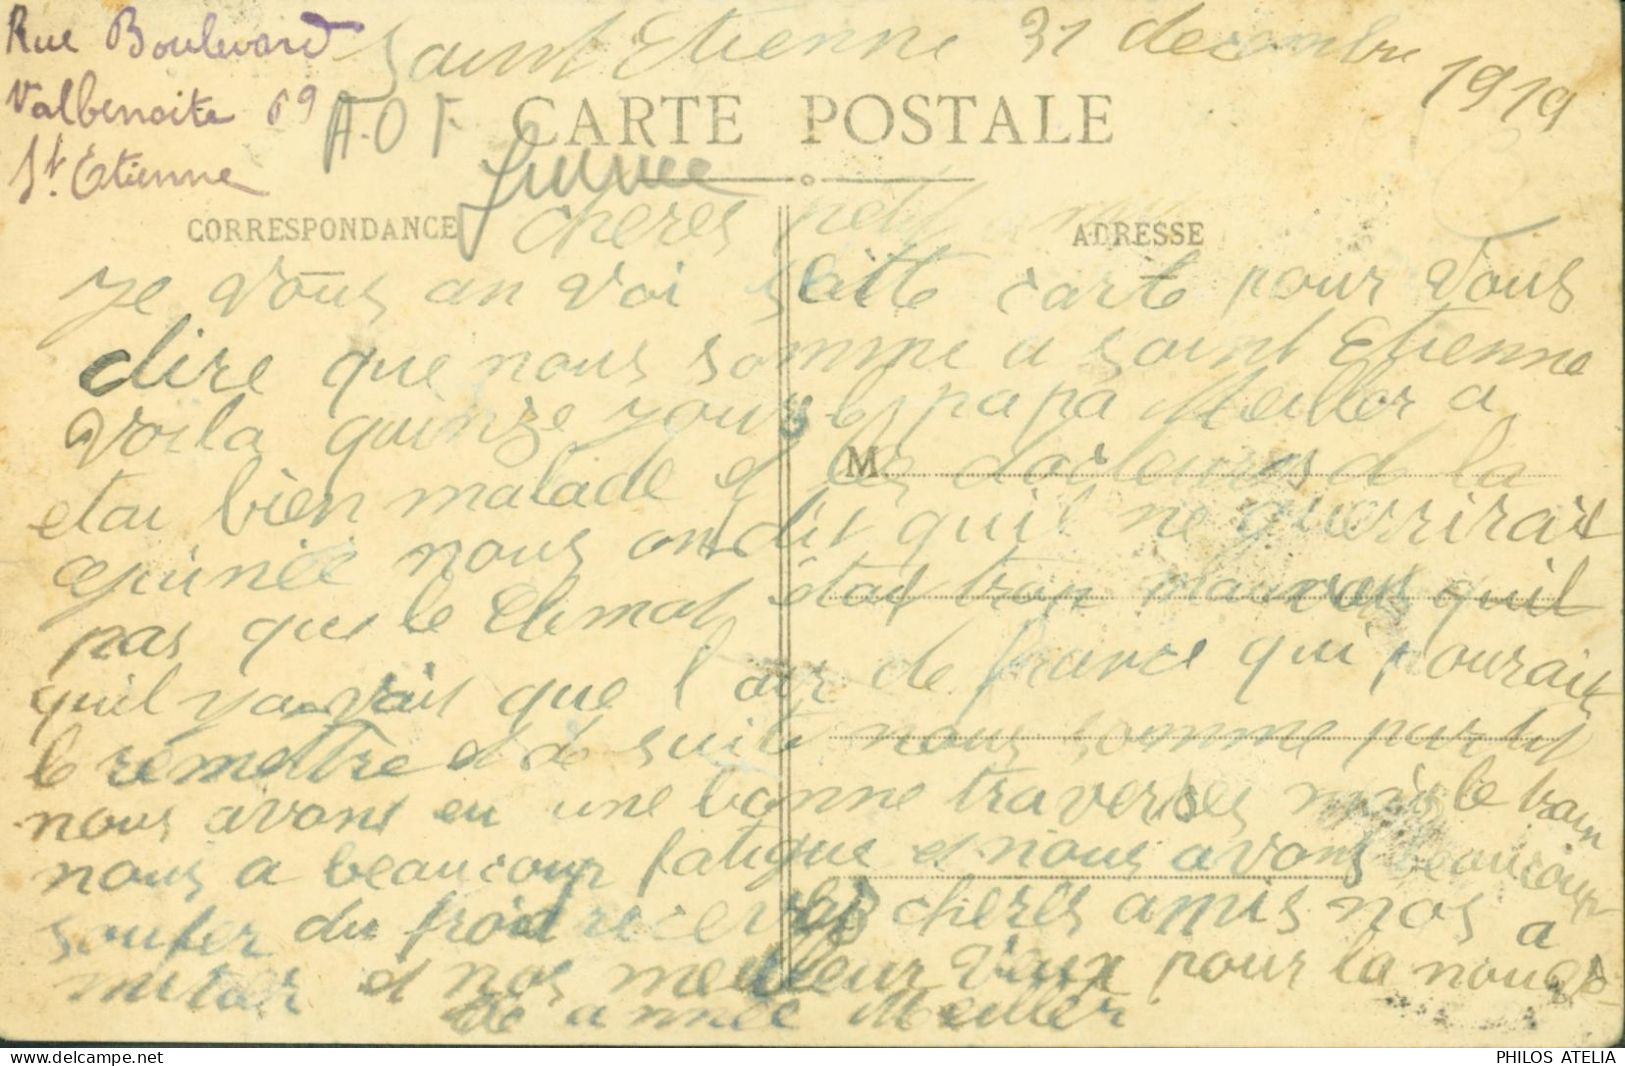 Rue Boulevard
Valbenoite 69
St Etienne
Saint Etienne 31 decembre
1919
A.O F.
Guinée
CARTE POSTALE
CORRESPONDANCE
ADRESSE
cheres petit
M
Je vous an voi saitte carte pour vous
dire que nous somme a saint Etienne
voila quinze yours les papa Meiller a
etai bien malade et les docteures de la
guinée nous on dit quil ne guerrirait
pas que le Climat était trop mauvais quil
quil y avait que l air de france qui pourait
le remettre et de suite nous somme partit
nous avons eu une bonne traverses mais le train
nous a beaucoup fatigue et nous avons beaucoup
soufer du froid recever cheres amis nos a
mitier et nos meilleur væux pour la nouvel
le année Meiller
PHILOS ATELIA